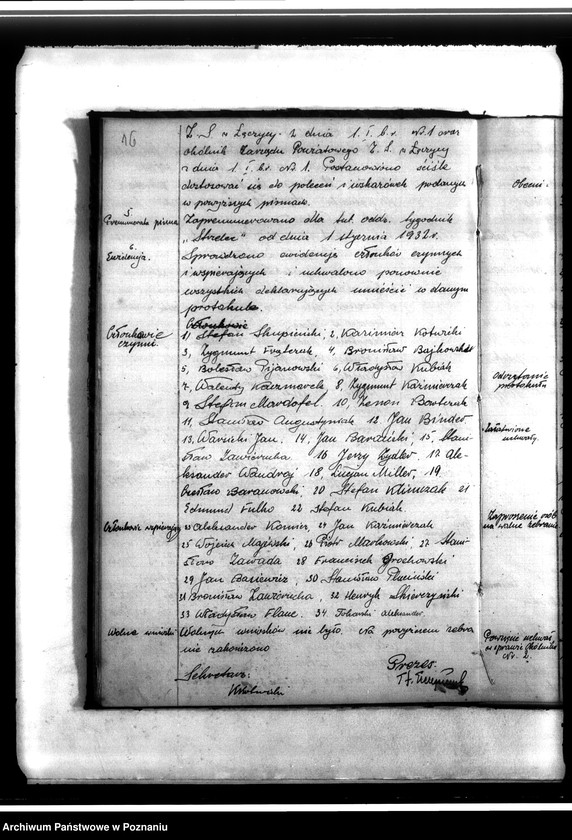 16
Z. S. w Łęczycy z dnia 1. I. b.r. N. 1 oraz
okólnik Zarządu Powiatowego Z. S. w Łęczycy
z dnia 1. I. b.r. N. 1. Postanowiono ściśle
dostosować się do poleceń i wskazówek podanych
w powyższych pismach.
5.
Prenumerata pisma
Zaprenumerowano dla tut. oddz. tygodnik
„Strzelec" od dnia 1 stycznia 1932 r.
6.
Ewidencja.
Sprawdzono ewidencję członków czynnych
i wspierających i uchwalono ponownie
wszystkich deklarujących umieścić w danym
protokule.
Członkowie
czynni.
Członkowie
1) Stefan Skupieński, 2, Kazimierz Kotwicki
3, Zygmunt 4, Bronisław Bajkowski
5, Bolesław Pijanowski, 6, Władysław Kubiak
7, Walenty Kaczmarek, 8 Zygmunt Kaźmierczak
9 Stefan 10, Zenon
11, Stanisław Augustyniak 12 Jan Binder
13, Warzecki Jan. 14, Jan 15, Stani-
sław Zawierucha. 16 Jerzy Zydler 17 Ale-
ksander 18, Lucjan Miller, 19
Baranowski, 20 Stefan Klimczak 21
Edmund Fulko 22 Stefan Kubiak
Członkowie wspierający
23 Aleksander 24 Jan Kaźmierczak
25 Wojciech Majewski, 26 Piotr Markowski, 27 Stani-
sław Zawada 28 Franciszek Grochowski
29 Jan 30 Stanisław
31 Bronisław Zawierucha, 32 Henryk Skierczyński
33 Władysław 34 Tokarski Aleksander.
Wolne wnioski
Wolnych wniosków nie było. Na powyższem zebra
nie zakończono
Sekretarz:
Prezes:
Obecni.
Odczytanie
protokułu
Załatwione
uchwały.
Zaproszenie osób
na walne zebranie
Powzięcie uchwał
w sprawie Okólnika
Nr. 2.
Archiwum Państwowe w Poznaniu